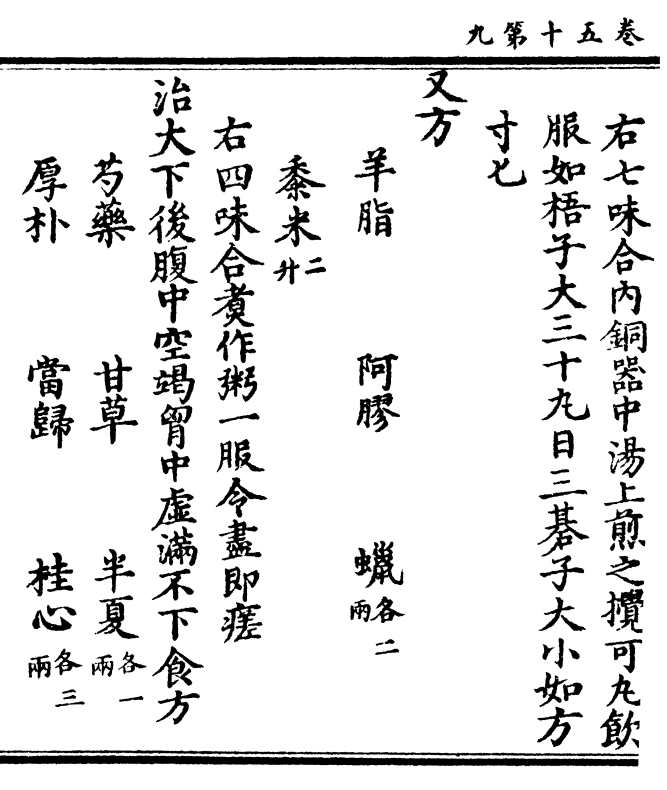 卷五十第九
右七味合內銅器中湯上煎之攪可丸飲
服如梧子大三十丸日三碁子大小如方
寸匕
又方
羊脂 阿膠 蠟各二兩
黍米二升
右四味合煑作粥一服令盡即瘥
治大下後腹中空竭胷中虛滿不下食方
芍藥 甘草 半夏各一兩
厚朴 當歸 桂心各三兩